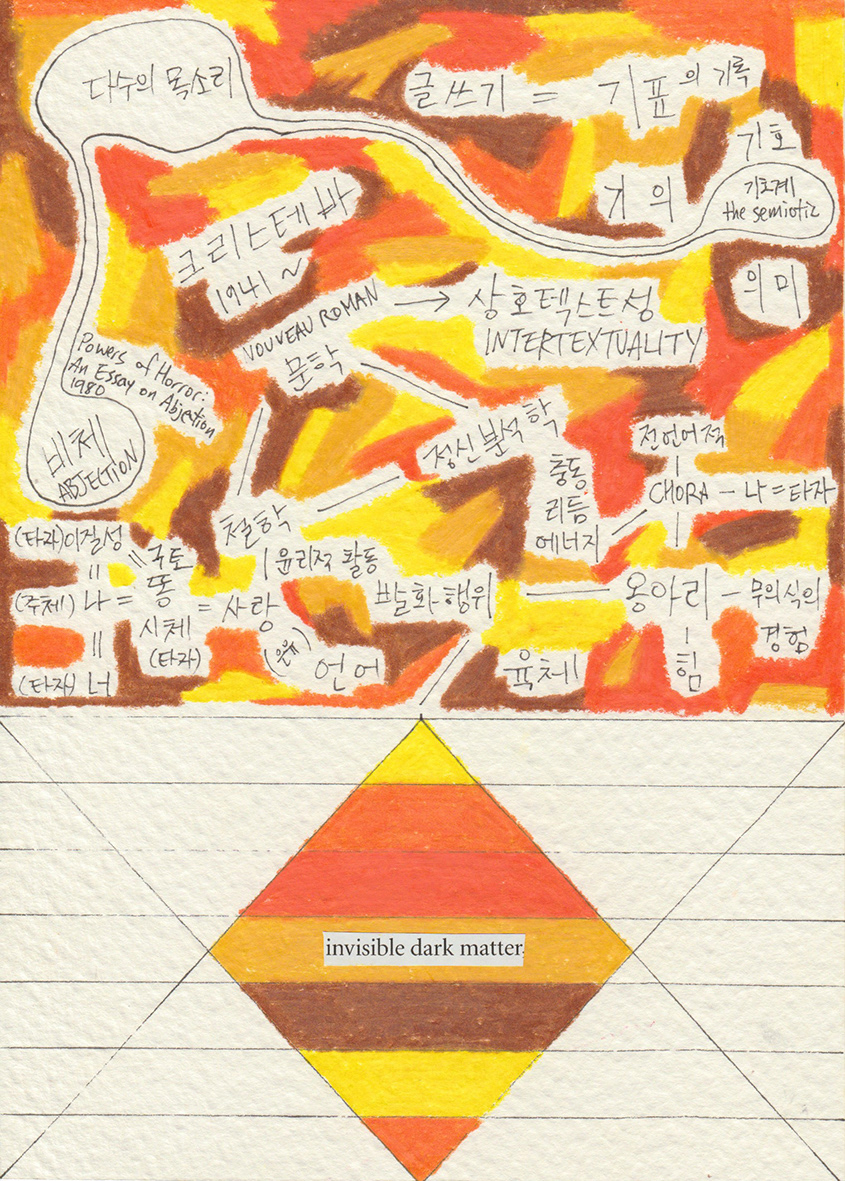 다수의 목소리
글쓰기 = 기표의 기록
기호
기의
기호계
the semiotic
크리스테바
1941 ~
의미
NOUVEAU ROMAN → 상호텍스트성
INTERTEXTUALITY
문학
Powers of Horror:
An Essay on Abjection
1980
비체
ABJECTION
정신분석학
충동
리듬
에너지
전언어적
CHORA - 나 = 타자
철학
윤리적 활동
(타자) 이질성
"
(주체) 나 =
"
(타자) 너
" 구토
똥
시체
(타자)
= 사랑
(은유)
언어
발화행위
옹아리 - 무의식의
경험
힘
육체
invisible dark matter